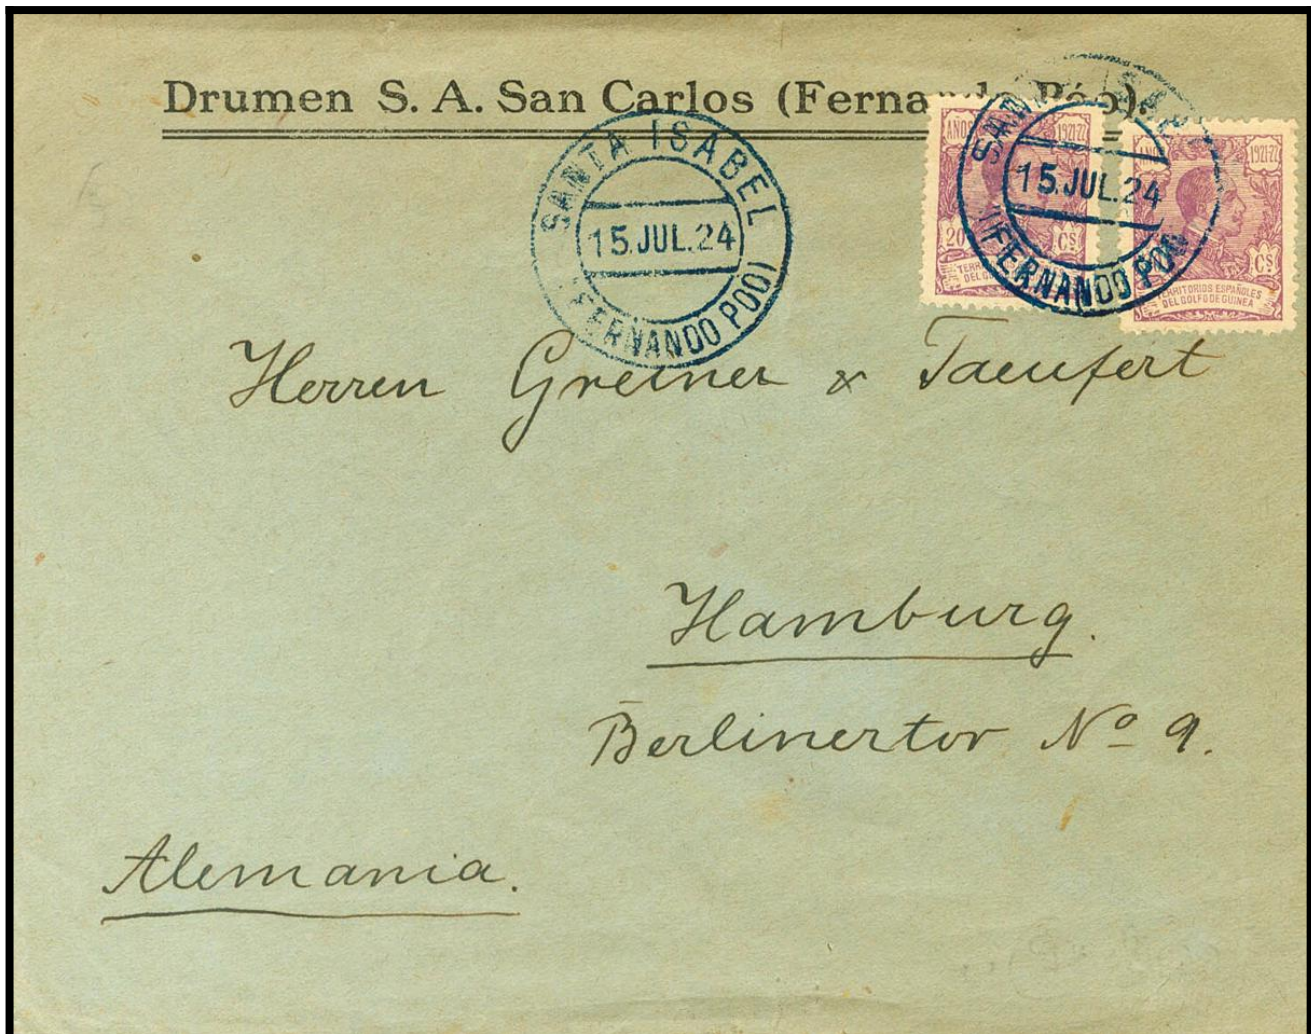 Drumen S. A. San Carlos (Fernando Póo).
SANTA ISABEL
15.JUL.24
(FERNANDO POO)
AÑOS 1921-22
20 Cs
SANTA ISABEL
15.JUL.24
(FERNANDO POO)
1921-22
Cs
TERRITORIOS ESPAÑOLES
DEL GOLFO DE GUINEA
Herren Greiner & Taeufert
Hamburg.
Berlinertor Nº 9.
Alemania.